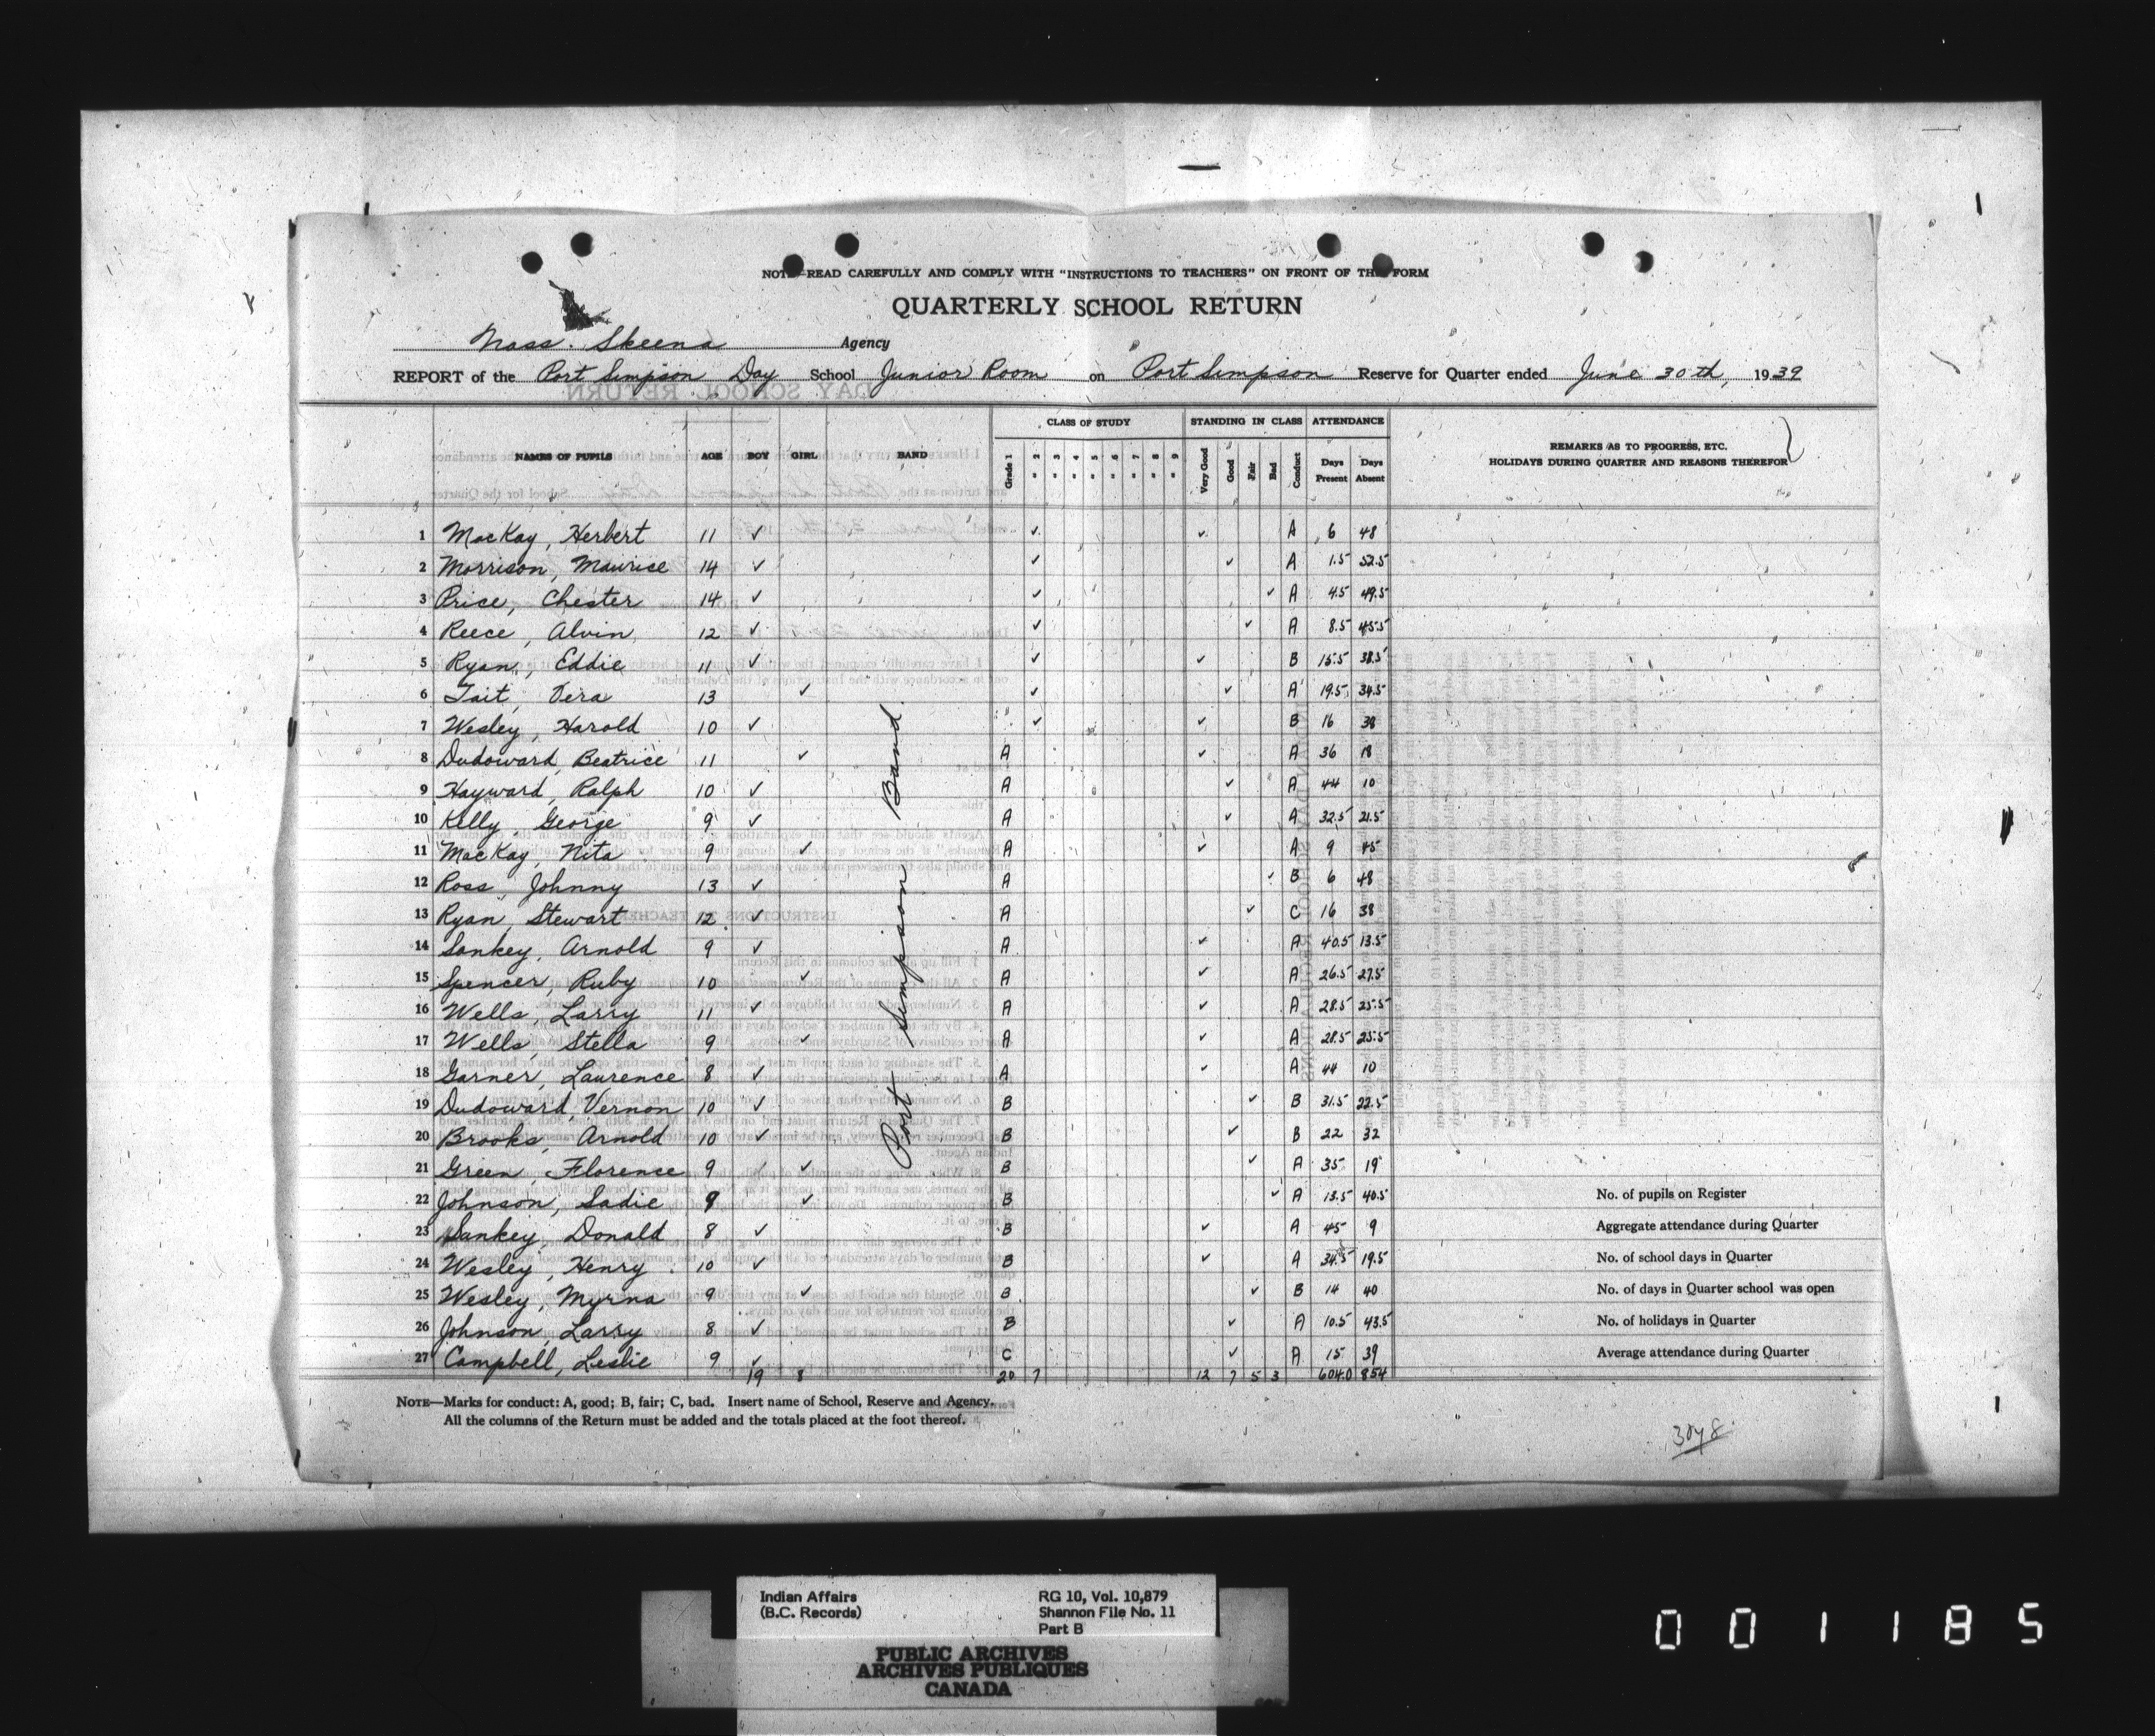 NOTE—READ CAREFULLY AND COMPLY WITH "INSTRUCTIONS TO TEACHERS" ON FRONT OF THIS FORM
QUARTERLY SCHOOL RETURN
Nass. Skeena Agency
REPORT of the Port Simpson Day School Junior Room on Port Simpson Reserve for Quarter ended June 30th, 1939
CLASS OF STUDY STANDING IN CLASS ATTENDANCE
NAMES OF PUPILS AGE BOY GIRL BAND Grade 1 " 2 " 3 " 4 " 5 " 6 " 7 " 8 " 9 Very Good Good Fair Bad Conduct Days Present Days Absent REMARKS AS TO PROGRESS, ETC. HOLIDAYS DURING QUARTER AND REASONS THEREFOR
Port Simpson Band
1 MacKay, Herbert 11 ✓ ✓ ✓ A 6 48
2 Morrison, Maurice 14 ✓ ✓ ✓ A 1.5 52.5
3 Price, Chester 14 ✓ ✓ ✓ A 4.5 49.5
4 Reece, Alvin 12 ✓ ✓ ✓ A 8.5 45.5
5 Ryan, Eddie 11 ✓ ✓ ✓ B 15.5 38.5
6 Tait, Vera 13 ✓ ✓ ✓ A 19.5 34.5
7 Wesley, Harold 10 ✓ ✓ ✓ B 16 38
8 Dudoward, Beatrice 11 ✓ A ✓ A 36 18
9 Hayward, Ralph 10 ✓ A ✓ A 44 10
10 Kelly, George 9 ✓ A ✓ A 32.5 21.5
11 MacKay, Nita 9 ✓ A ✓ A 9 45
12 Ross, Johnny 13 ✓ A ✓ B 6 48
13 Ryan, Stewart 12 ✓ A ✓ C 16 38
14 Sankey, Arnold 9 ✓ A ✓ A 40.5 13.5
15 Spencer, Ruby 10 ✓ A ✓ A 26.5 27.5
16 Wells, Larry 11 ✓ A ✓ A 28.5 25.5
17 Wells, Stella 9 ✓ A ✓ A 28.5 25.5
18 Garner, Laurence 8 ✓ A ✓ A 44 10
19 Dudoward, Vernon 10 ✓ B ✓ B 31.5 22.5
20 Brooks, Arnold 10 ✓ B ✓ B 22 32
21 Green, Florence 9 ✓ B ✓ A 35 19
22 Johnson, Sadie 9 ✓ B ✓ A 13.5 40.5 No. of pupils on Register
23 Sankey, Donald 8 ✓ B ✓ A 45 9 Aggregate attendance during Quarter
24 Wesley, Henry 10 ✓ B ✓ A 34.5 19.5 No. of school days in Quarter
25 Wesley, Myrna 9 ✓ B ✓ B 14 40 No. of days in Quarter school was open
26 Johnson, Larry 8 ✓ B ✓ A 10.5 43.5 No. of holidays in Quarter
27 Campbell, Leslie 9 ✓ C ✓ A 15 39 Average attendance during Quarter
19 8 20 7 12 7 5 3 604.0 854
NOTE—Marks for conduct: A, good; B, fair; C, bad. Insert name of School, Reserve and Agency.
All the columns of the Return must be added and the totals placed at the foot thereof.
Indian Affairs RG 10, Vol. 10,879
(B.C. Records) Shannon File No. 11
Part B
PUBLIC ARCHIVES
ARCHIVES PUBLIQUES
CANADA
001185